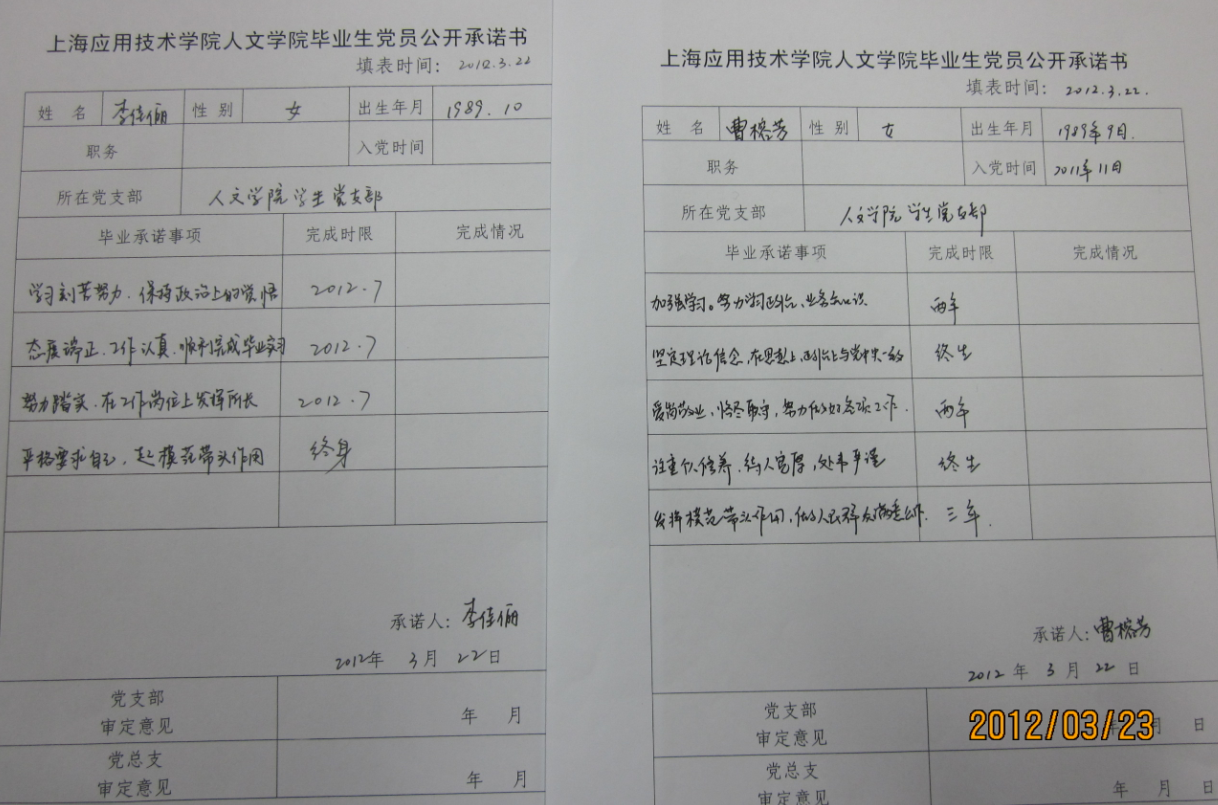 上海应用技术学院人文学院毕业生党员公开承诺书
填表时间： 2012.3.22
姓 名 李佳俪 性 别 女 出生年月 1989.10
职务 入党时间
所在党支部 人文学院学生党支部
毕业承诺事项 完成时限 完成情况
学习刻苦努力、保持政治上的觉悟 2012.7
态度端正、工作认真、顺利完成毕业实习 2012.7
努力踏实、在工作岗位上发挥所长 2012.7
严格要求自己，起模范带头作用 终身
承诺人：李佳俪
2012年 3月 22日
党支部
审定意见
年 月
党总支
审定意见
年 月
上海应用技术学院人文学院毕业生党员公开承诺书
填表时间： 2012.3.22.
姓 名 曹榕芳 性 别 女 出生年月 1989年9月.
职务 入党时间 2011年11月
所在党支部 人文学院学生党支部
毕业承诺事项 完成时限 完成情况
加强学习。努力学习政治、业务知识 两年
坚定理论信念，在思想上，政治上与党中央一致 终生
爱岗敬业，恪尽职守，努力做好各项工作. 两年
注重个人修养，待人宽厚，处事严谨 终生
发挥模范带头作用，做人民群众满意工作. 三年.
承诺人：曹榕芳
2012 年 3 月 22 日
党支部
审定意见
年 月 日
2012/03/23
党总支
审定意见
年 月 日